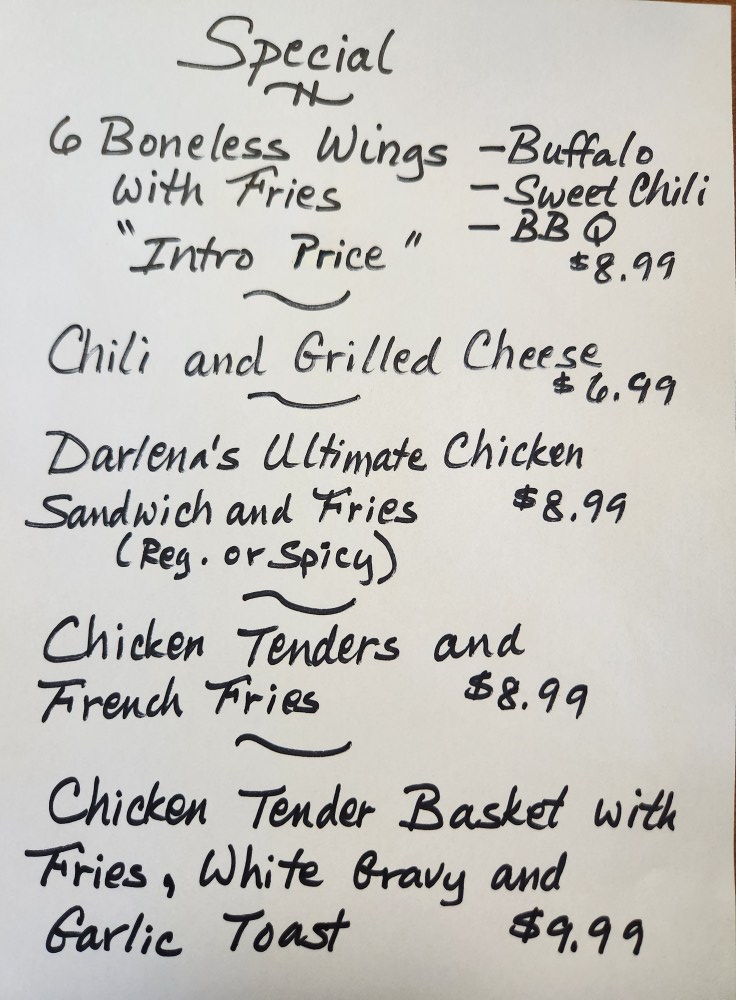 Special
6 Boneless Wings - Buffalo
with Fries - Sweet Chili
- BBQ
"Intro Price" $8.99
Chili and Grilled Cheese
$6.99
Darlena's Ultimate Chicken
Sandwich and Fries $8.99
(Reg. or Spicy)
Chicken Tenders and
French Fries $8.99
Chicken Tender Basket with
Fries, White Gravy and
Garlic Toast $9.99